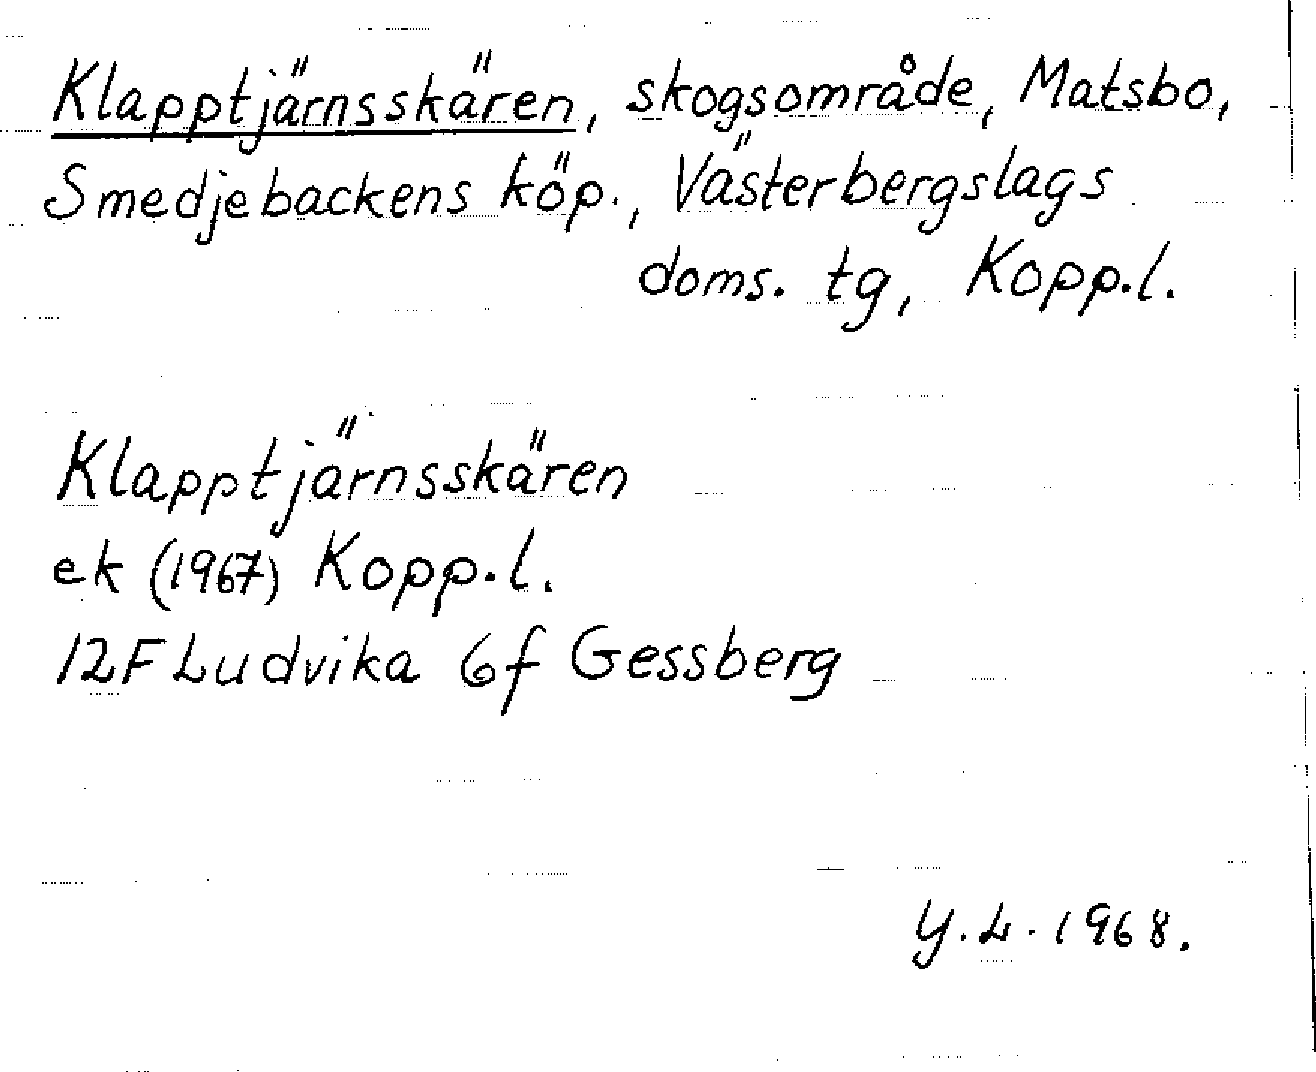 Klapptjärnsskären, skogsområde, Matsbo,
Smedjebackens köp., Västerbergslags
doms. tg, Kopp.l.
Klapptjärnsskären
ek (1967) Kopp.l.
12F Ludvika 6f Gessberg
Y.L. 1968.